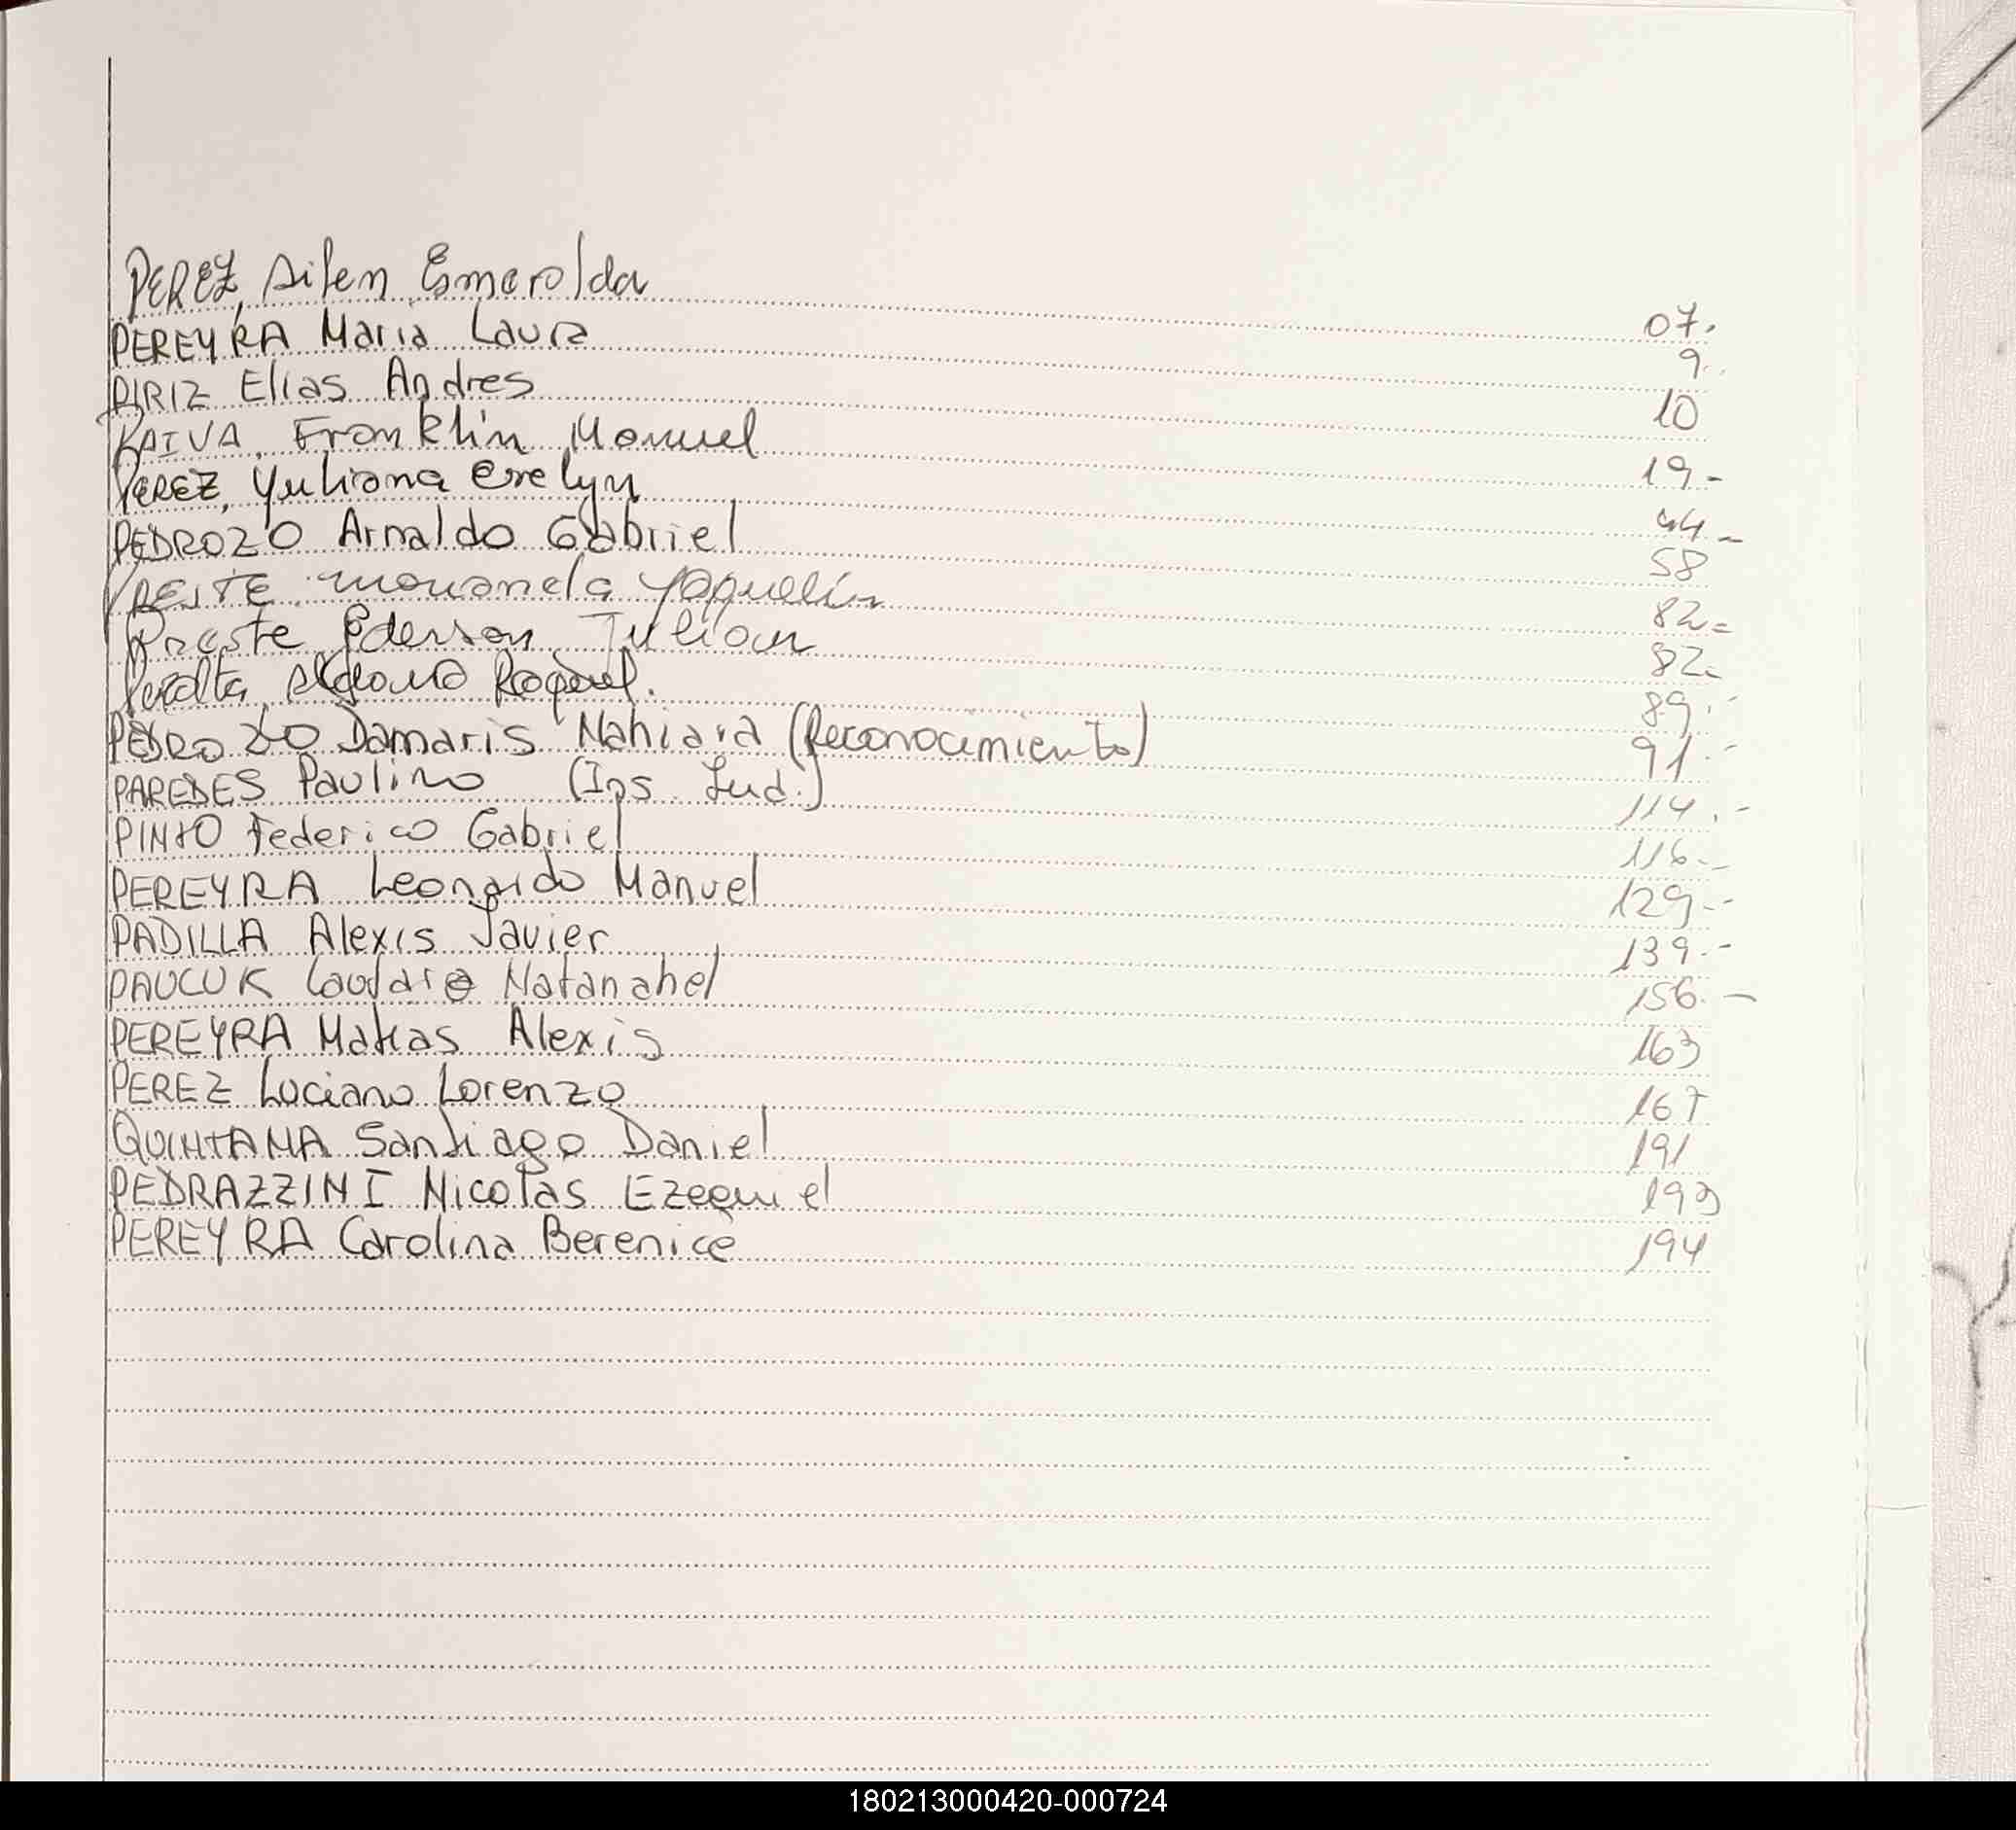 PEREZ, Ailen Esmeralda 07.
PEREYRA Maria Laura 9.
PIRIZ Elias Andres 10
PAIVA, Franklin Manuel 19-
PEREZ, Yuliana Evelyn 44.-
PEDROZO Arnaldo Gabriel 58
PRESTE Yaquelin 82-
Preste Ederson Julian 82-
Peralta, Raquel. 89.-
PEDROZO Damaris Nahiara (Reconocimiento) 91.-
PAREDES Paulino (Ins. Jud.) 114.-
PINTO Federico Gabriel 116.-
PEREYRA Leonardo Manuel 129.-
PADILLA Alexis Javier 139.-
PAUCUK Claudio Natanahel 156.-
PEREYRA Matias Alexis 163
PEREZ Luciano Lorenzo 167
QUINTANA Santiago Daniel 191
PEDRAZZINI Nicolas Ezequiel 193
PEREYRA Carolina Berenice 194
180213000420-000724